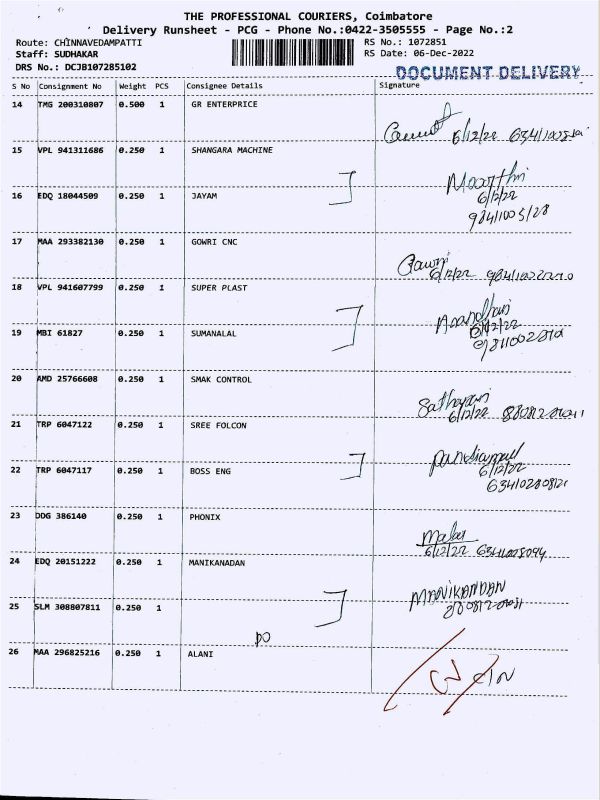 THE PROFESSIONAL COURIERS, Coimbatore
Delivery Runsheet - PCG - Phone No.:0422-3505555 - Page No.:2
Route: CHINNAVEDAMPATTI RS No.: 1072851
Staff: SUDHAKAR RS Date: 06-Dec-2022
DRS No.: DCJB107285102 DOCUMENT DELIVERY
S No Consignment No Weight PCS Consignee Details Signature
14 TMG 200310807 0.500 1 GR ENTERPRICE
6/12/22
15 VPL 941311686 0.250 1 SHANGARA MACHINE
Moorthi
6/12/22
16 EDQ 18044509 0.250 1 JAYAM
17 MAA 293382130 0.250 1 GOWRI CNC
Gowri
6/12/22
18 VPL 941607799 0.250 1 SUPER PLAST
6/12/22
19 MBI 61827 0.250 1 SUMANALAL
20 AMD 25766608 0.250 1 SMAK CONTROL
6/12/22
21 TRP 6047122 0.250 1 SREE FOLCON
6/12/22
22 TRP 6047117 0.250 1 BOSS ENG
23 DDG 386140 0.250 1 PHONIX
6/12/22
24 EDQ 20151222 0.250 1 MANIKANADAN
MANIKANDAN
25 SLM 308807811 0.250 1
DO
26 MAA 296825216 0.250 1 ALANI